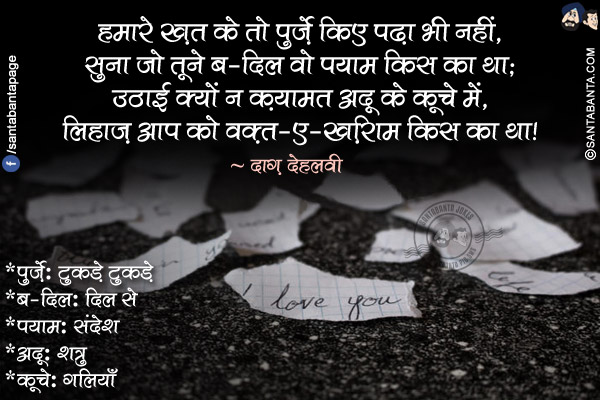 हमारे ख़त के तो पुर्ज़े किए पढ़ा भी नहीं,
सुना जो तूने ब-दिल वो पयाम किस का था;
उठाई क्यों न क़यामत अदू के कूचे में,
लिहाज़ आप को वक़्त-ए-ख़शिराम किस का था!
~ दाग़ देहलवी
*पुर्जे: टुकड़े टुकड़े
*ब-दिल: दिल से
*पयाम: संदेश
*अदू: शत्रु
*कूचे: गलियाँ
I love you
/santabantapage
©SANTABANTA.COM
SANTABANTA JOKES